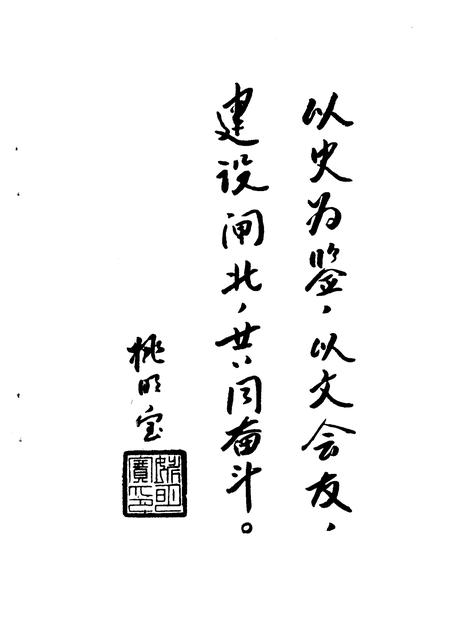 以史为鉴,以文会友,
建设闸北,共同奋斗。
姚明宝
姚明
寶印